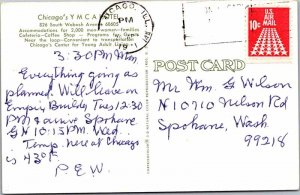 Chicago's Y M C A HOTEL
826 South Wabash Avenue 60605
Accommodations for 2,000 men-women-families
Cafeteria-Coffee Shop - Programs for Guests
Near the Loop-Convenient to transportation
Chicago's Center for Young Adult
CHICAGO, ILL.
PM
U.S.
AIR MAIL
10c
POST CARD
3:30 P.M. Mon
Everything going as
planned. Will leave on
Empire Builder Tues 12:30
P.M. & arrive Spokane
10:15 P.M. Wed.
Temp. here at Chicago
is 43° F.
P.E.W.
Mr Wm G Wilson
N 10710 Nelson Rd
Spokane, Wash.
99218